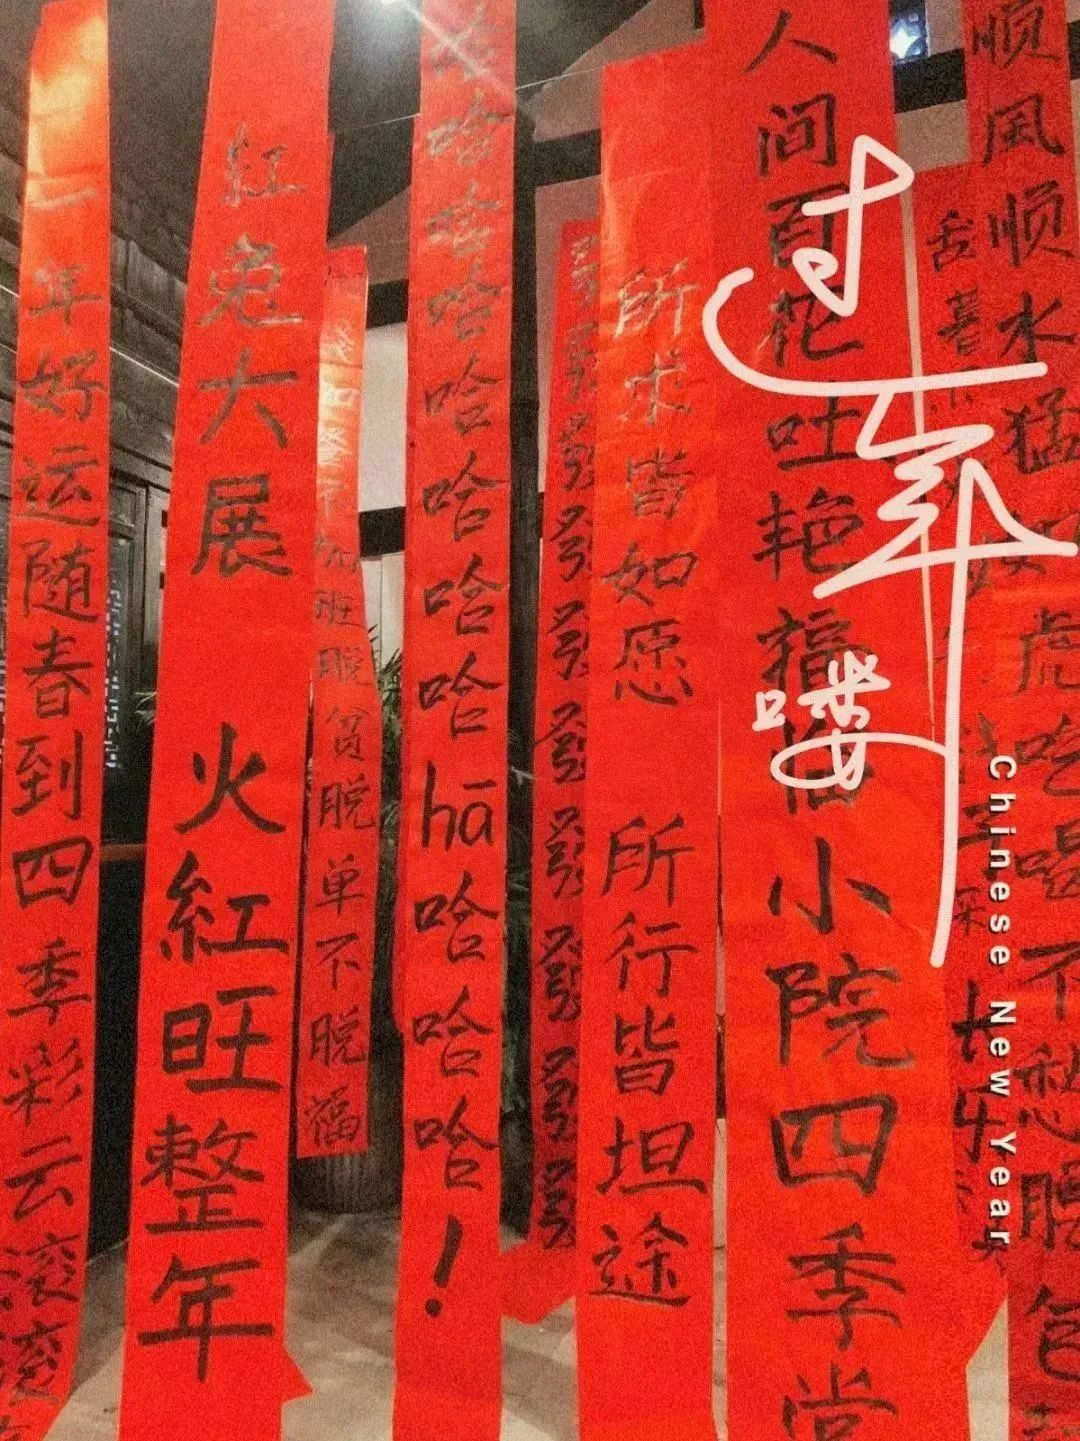 一年好运随春到四季彩云滚滚
紅兔大展 火紅旺整年
班脱贫脱单不脱福
哈哈哈哈哈哈哈哈hā哈哈哈!
發發發發發發發發發
所求皆如愿 所行皆坦途
人间百花吐艳福临小院四季常
顺风顺水猛如虎吃喝不愁腰包
过年喽
Chinese New Year